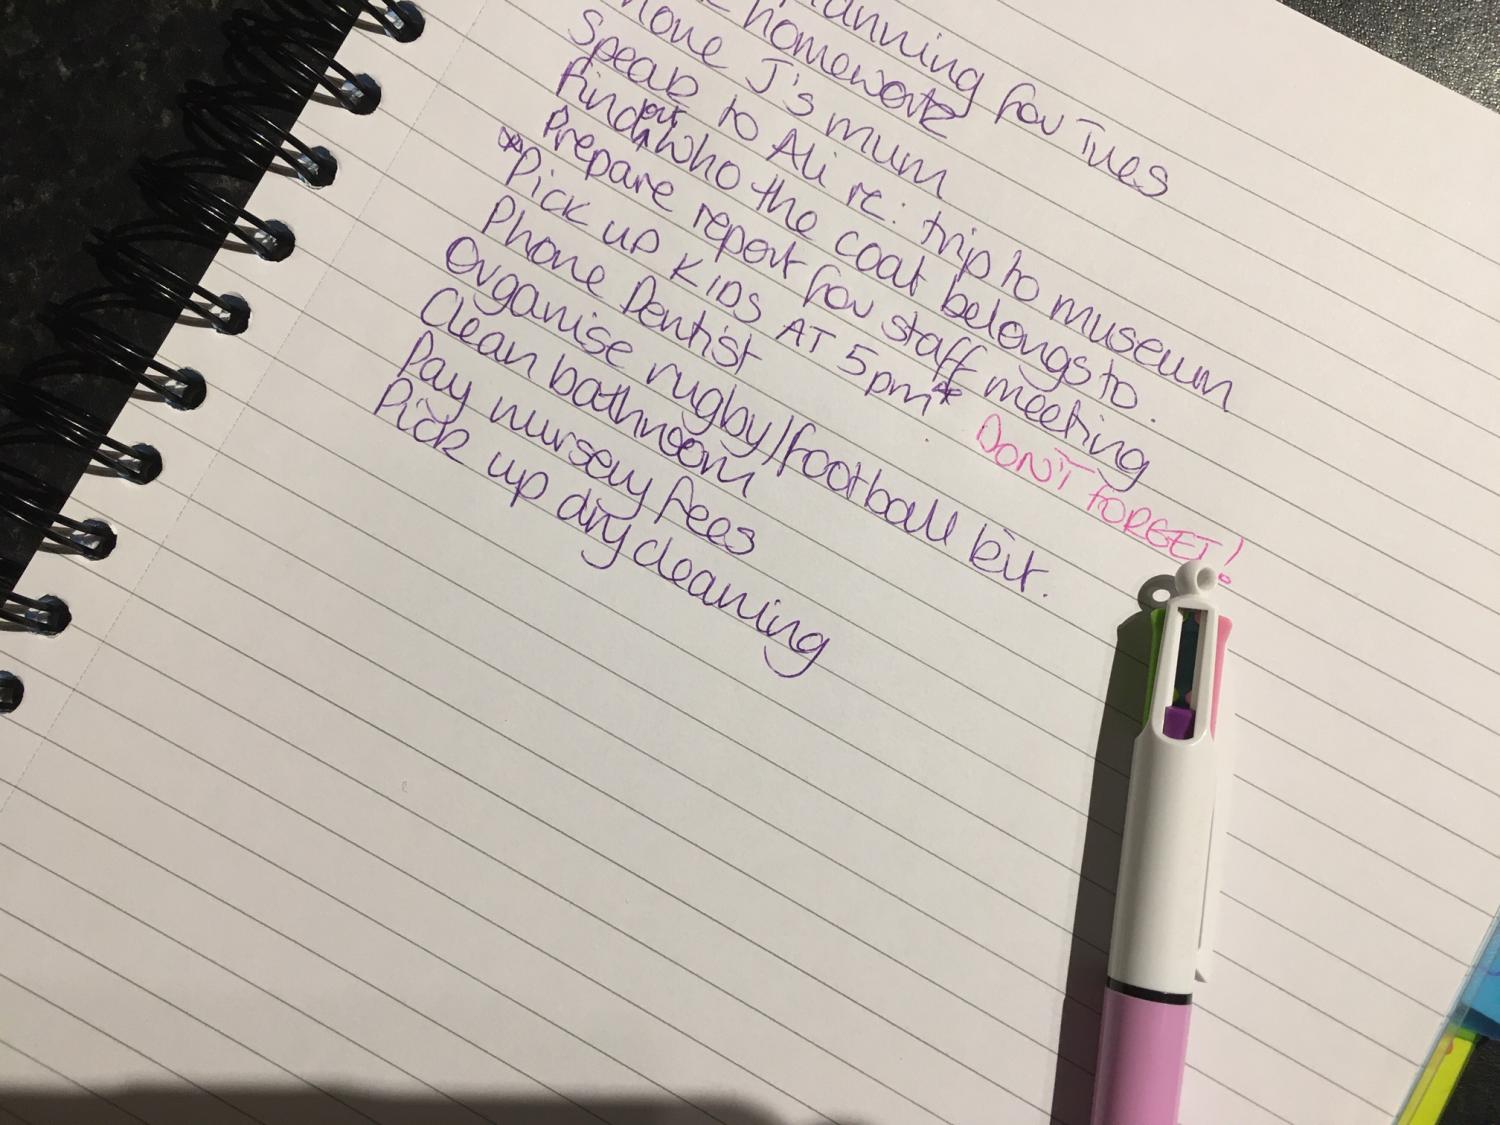 planning for Tues
homework
Phone J's mum
Speak to Ali re: trip to museum
Find out who the coat belongs to.
Prepare report for staff meeting
*Pick up KIDS AT 5pm* DON'T FORGET!
Phone Dentist
Organise rugby/football kit.
Clean bathroom
Pay nursery fees
Pick up dry cleaning